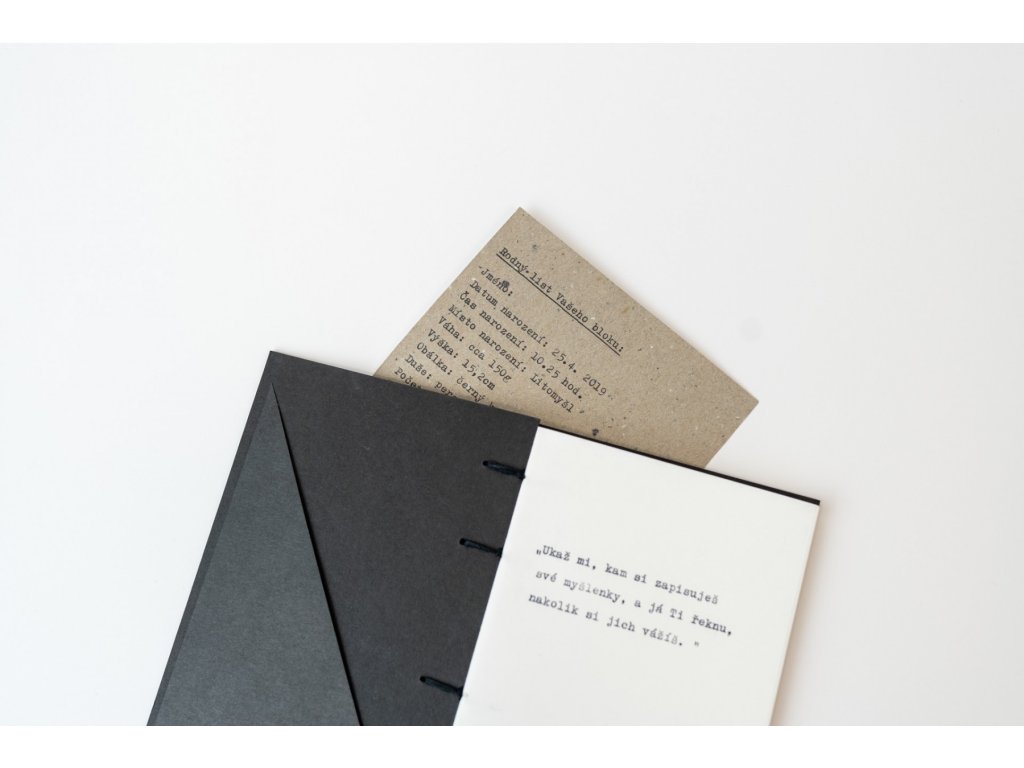 Rodný list Vašeho bloku:
Jméno:
Datum narození: 25.4. 2019
Čas narození: 10.25 hod.
Místo narození: Litomyšl
Váha: cca 150g
Výška: 15,2cm
Obálka: černý
Duše:
Počet
„Ukaž mi, kam si zapisuješ
své myšlenky, a já Ti řeknu,
nakolik si jich vážíš. "